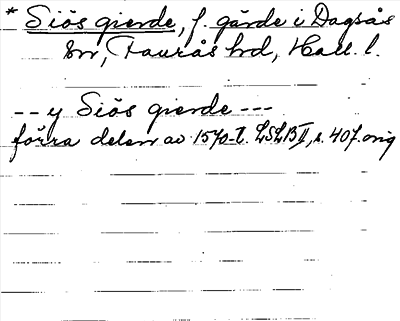 * Siös gierde, f. gärde i Dagsås
sn, Faurås hd, Hall. l.
-- y Siös gierde ---
förra delen av 1570-t. LSLB II, s. 407. orig